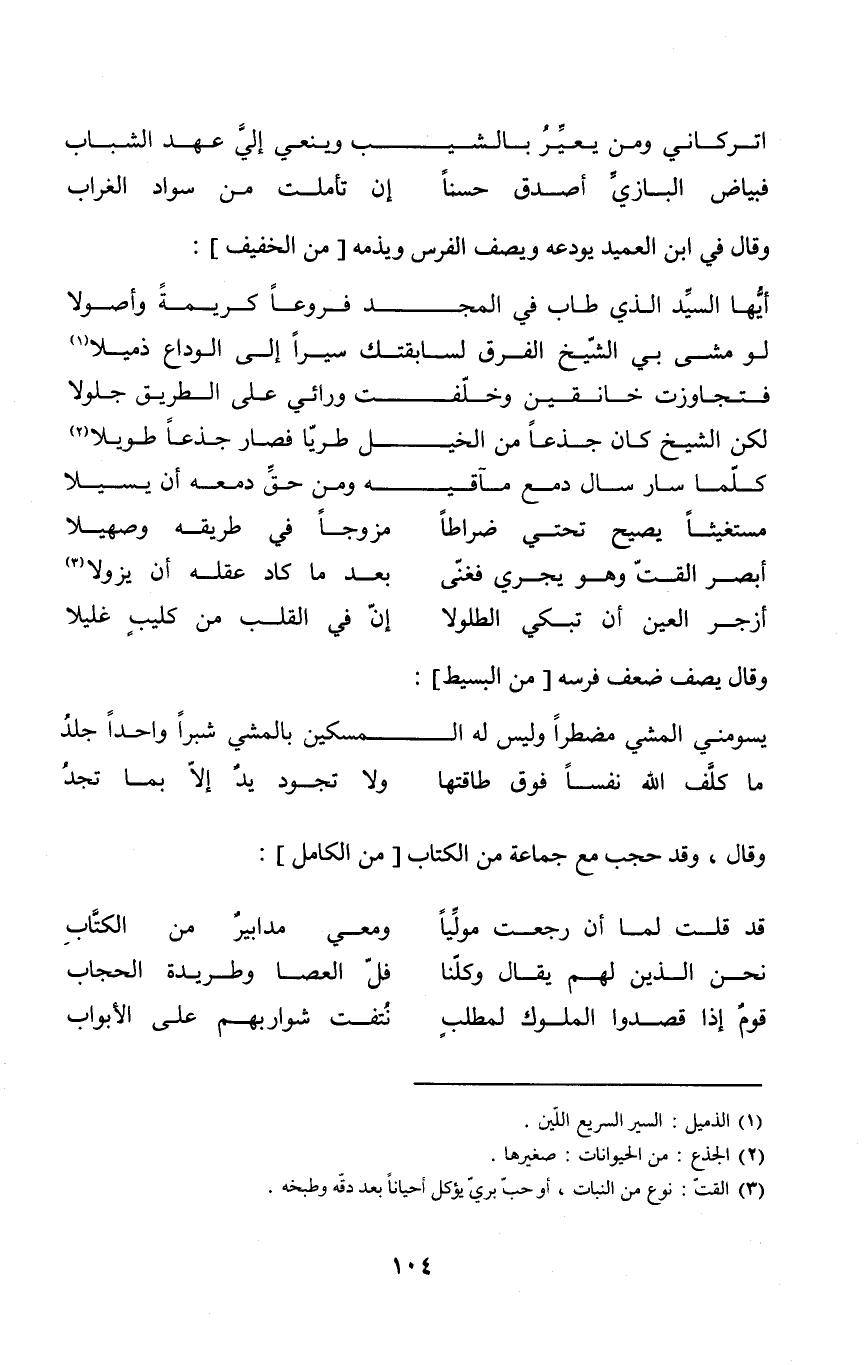 اتركاني ومن يعيِّرُ بالشيب وينعي إليَّ عهد الشباب
فبياض البازيِّ أصدق حسناً إن تأملت من سواد الغراب
وقال في ابن العميد يودعه ويصف الفرس ويذمه [ من الخفيف ] :
أيُّها السيِّد الذي طاب في المجد فروعاً كريمةً وأصولا
لو مشى بي الشّيخ الفرق لسابقتك سيراً إلى الوداع ذميلا(١)
فتجاوزت خانقين وخلّفت ورائي على الطريق جلولا
لكن الشيخ كان جذعاً من الخيل طريّا فصار جذعاً طويلا(٢)
كلّما سار سال دمع مآقيه ومن حقِّ دمعه أن يسيلا
مستغيثاً يصيح تحتي ضراطاً مزوجاً في طريقه وصهيلا
أبصر القتّ وهو يجري فغنّى بعد ما كاد عقله أن يزولا(٣)
أزجر العين أن تبكي الطلولا إنّ في القلب من كليبٍ غليلا
وقال يصف ضعف فرسه [ من البسيط ] :
يسومني المشي مضطراً وليس له المسكين بالمشي شبراً واحداً جلدُ
ما كلَّف الله نفساً فوق طاقتها ولا تجود يدٌ إلاّ بما تجدُ
وقال ، وقد حجب مع جماعة من الكتاب [ من الكامل ] :
قد قلت لما أن رجعت مولِّياً ومعي مدابيرٌ من الكتَّابِ
نحن الذين لهم يقال وكلّنا فلّ العصا وطريدة الحجاب
قومٌ إذا قصدوا الملوك لمطلبٍ نُتفت شواربهم على الأبواب
(١) الذميل : السير السريع اللّين .
(٢) الجذع : من الحيوانات : صغيرها .
(٣) القتّ : نوع من النبات ، أو حبّ بريّ يؤكل أحياناً بعد دقّه وطبخه .
١٠٤